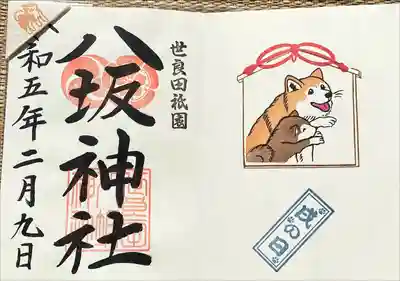 世良田祇園
八坂神社
令和五年二月九日
戌の日